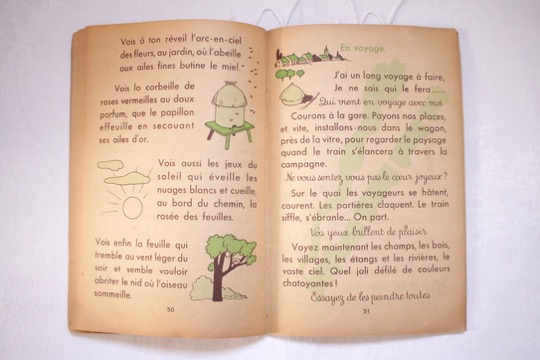 Vois à ton réveil l'arc-en-ciel
des fleurs, au jardin, où l'abeille
aux ailes fines butine le miel.
Vois la corbeille de
roses vermeilles au doux
parfum, que le papillon
effeuille en secouant
ses ailes d'or.
Vois aussi les jeux du
soleil qui éveille les
nuages blancs et cueille,
au bord du chemin, la
rosée des feuilles.
Vois enfin la feuille qui
tremble au vent léger du
soir et semble vouloir
abriter le nid où l'oiseau
sommeille.
50
En voyage.
J'ai un long voyage à faire,
Je ne sais qui le fera.....
Qui vient en voyage avec moi
Courons à la gare. Payons nos places,
et vite, installons-nous dans le wagon,
près de la vitre, pour regarder le paysage
quand le train s'élancera à travers la
campagne.
Ne vous sentez vous pas le cœur joyeux ?
Sur le quai les voyageurs se hâtent,
courent. Les portières claquent. Le train
siffle, s'ébranle... On part.
Vos yeux brillent de plaisir
Voyez maintenant les champs, les bois,
les villages, les étangs et les rivières, le
vaste ciel. Quel joli défilé de couleurs
chatoyantes !
Essayez de les peindre toutes
51